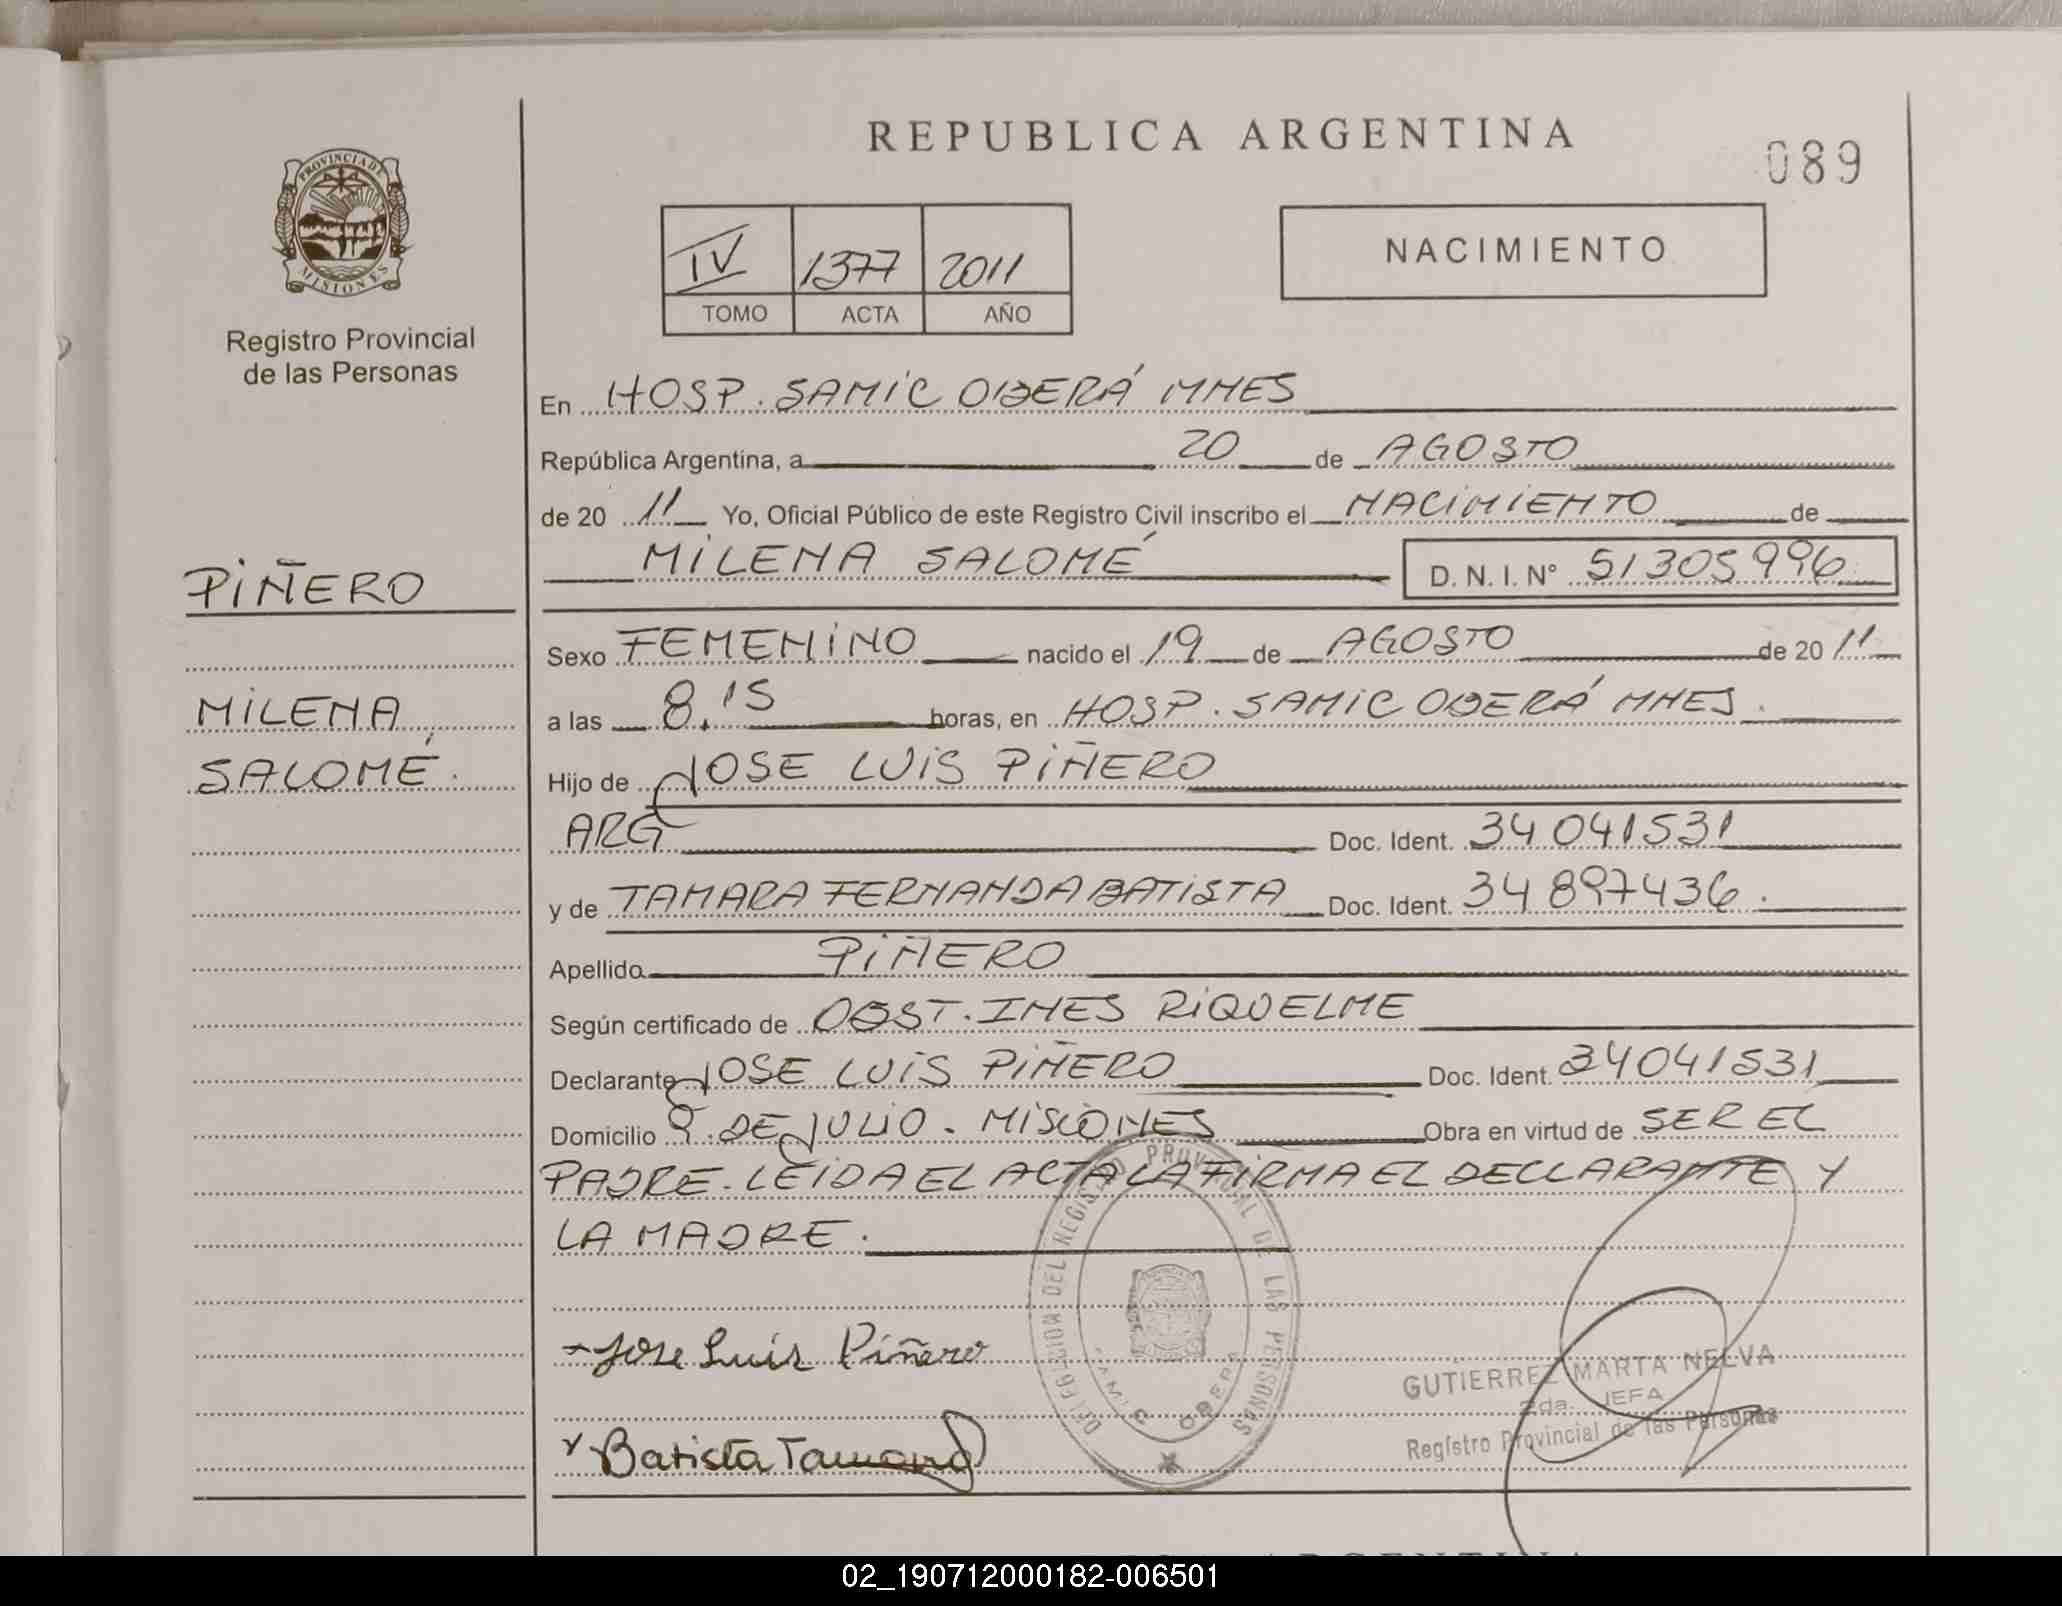 REPUBLICA ARGENTINA
089
PROVINCIA DE
MISIONES
Registro Provincial
de las Personas
IV 1377 2011
TOMO ACTA AÑO
NACIMIENTO
En HOSP. SAMIC OBERÁ MNES
República Argentina, a 20 de AGOSTO
de 20 11 Yo, Oficial Público de este Registro Civil inscribo el NACIMIENTO de
MILENA SALOMÉ D. N. I. N° 51305996
PIÑERO
MILENA
SALOMÉ.
Sexo FEMENINO nacido el 19 de AGOSTO de 20 11
a las 8.15 horas, en HOSP. SAMIC OBERÁ MNES.
Hijo de JOSE LUIS PIÑERO
ARG Doc. Ident. 34 041531
y de TAMARA FERNANDA BATISTA Doc. Ident. 34 897436.
Apellido PIÑERO
Según certificado de OBST. INES RIQUELME
Declarante JOSE LUIS PIÑERO Doc. Ident. 34041531
Domicilio 9 DE JULIO. MISIONES Obra en virtud de SER EL
PADRE. LEIDA EL ACTA LA FIRMA EL DECLARANTE Y
LA MADRE.
Jose Luis Piñero
Batista Tamara
DELEGACION DEL REGISTRO PROVINCIAL DE LAS PERSONAS
SAMIC OBERA
GUTIERREZ MARTA NELVA
2da. JEFA
Registro Provincial de las Personas
02_190712000182-006501